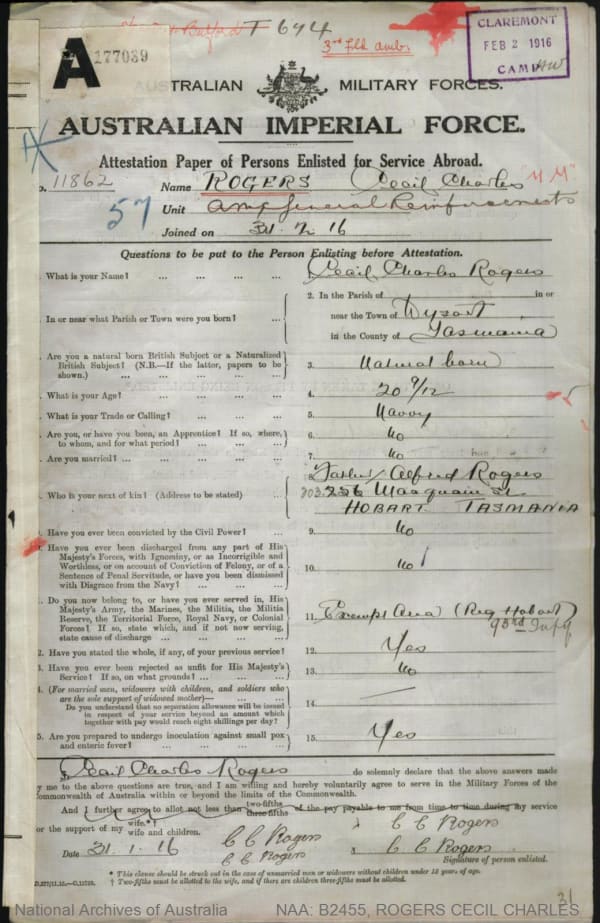 T 644
3rd fld amb.
CLAREMONT
FEB 2 1916
CAMP
A 177039
AUSTRALIAN MILITARY FORCES.
AUSTRALIAN IMPERIAL FORCE.
Attestation Paper of Persons Enlisted for Service Abroad.
o. 11862 Name ROGERS Cecil Charles "M M"
57 Unit Amc General Reinforcements
Joined on 31. 1. 16
Questions to be put to the Person Enlisting before Attestation.
. What is your Name? ... ... ... ... 1. Cecil Charles Rogers
. In or near what Parish or Town were you born? ...
2. In the Parish of in or
near the Town of
in the County of Tasmania
. Are you a natural born British Subject or a Naturalized
British Subject? (N.B.—If the latter, papers to be
shown.) ... ... ... ... 3. Natural born
. What is your Age? ... ... ... ... 4. 20 9/12
. What is your Trade or Calling? ... ... ... 5. Navvy
. Are you, or have you been, an Apprentice? If so, where,
to whom, and for what period? ... ... ... 6. No
. Are you married? ... ... ... ... 7. No
. Who is your next of kin? (Address to be stated) ...
8. Father/ Alfred Rogers
Macquarie St.
HOBART TASMANIA
. Have you ever been convicted by the Civil Power? ... 9. No
. Have you ever been discharged from any part of His
Majesty's Forces, with Ignominy, or as Incorrigible and
Worthless, or on account of Conviction of Felony, or of a
Sentence of Penal Servitude, or have you been dismissed
with Disgrace from the Navy? ... ... ... 10. No
. Do you now belong to, or have you ever served in, His
Majesty's Army, the Marines, the Militia, the Militia
Reserve, the Territorial Force, Royal Navy, or Colonial
Forces? If so, state which, and if not now serving,
state cause of discharge ... ... ... 11. Exempt Area (Reg Hobart)
93rd Infy
2. Have you stated the whole, if any, of your previous service? 12. Yes
3. Have you ever been rejected as unfit for His Majesty's
Service? If so, on what grounds? ... ... 13. No
4. (For married men, widowers with children, and soldiers who
are the sole support of widowed mother)—
Do you understand that no separation allowance will be issued
in respect of your service beyond an amount which
together with pay would reach eight shillings per day? 14. —
5. Are you prepared to undergo inoculation against small pox
and enteric fever? ... ... ... ... 15. Yes
Cecil Charles Rogers do solemnly declare that the above answers made
y me to the above questions are true, and I am willing and hereby voluntarily agree to serve in the Military Forces of the
ommonwealth of Australia within or beyond the limits of the Commonwealth.
And I further agree to allot not less than two-fifths three-fifths of the pay payable to me from time to time during my service
or the support of my wife.*† wife and children. C C Rogers x C C Rogers
Date 31. 1. 16 C C Rogers x C C Rogers
Signature of person enlisted.
* This clause should be struck out in the case of unmarried men or widowers without children under 18 years of age.
† Two-fifths must be allotted to the wife, and if there are children three-fifths must be allotted.
31
National Archives of Australia NAA: B2455, ROGERS CECIL CHARLES